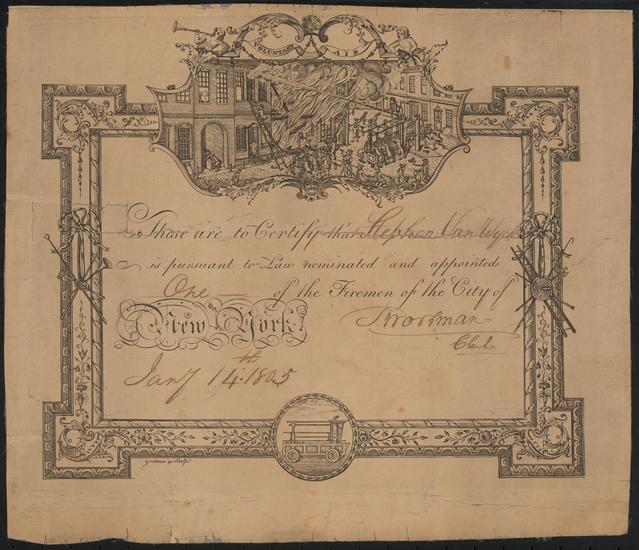 VOLUNTARY AID
These are to Certify that Stephen Van Wyk
is pursuant to Law nominated and appointed
One of the Firemen of the City of
New York
T Wortman
Clk
Jany 14th 1805